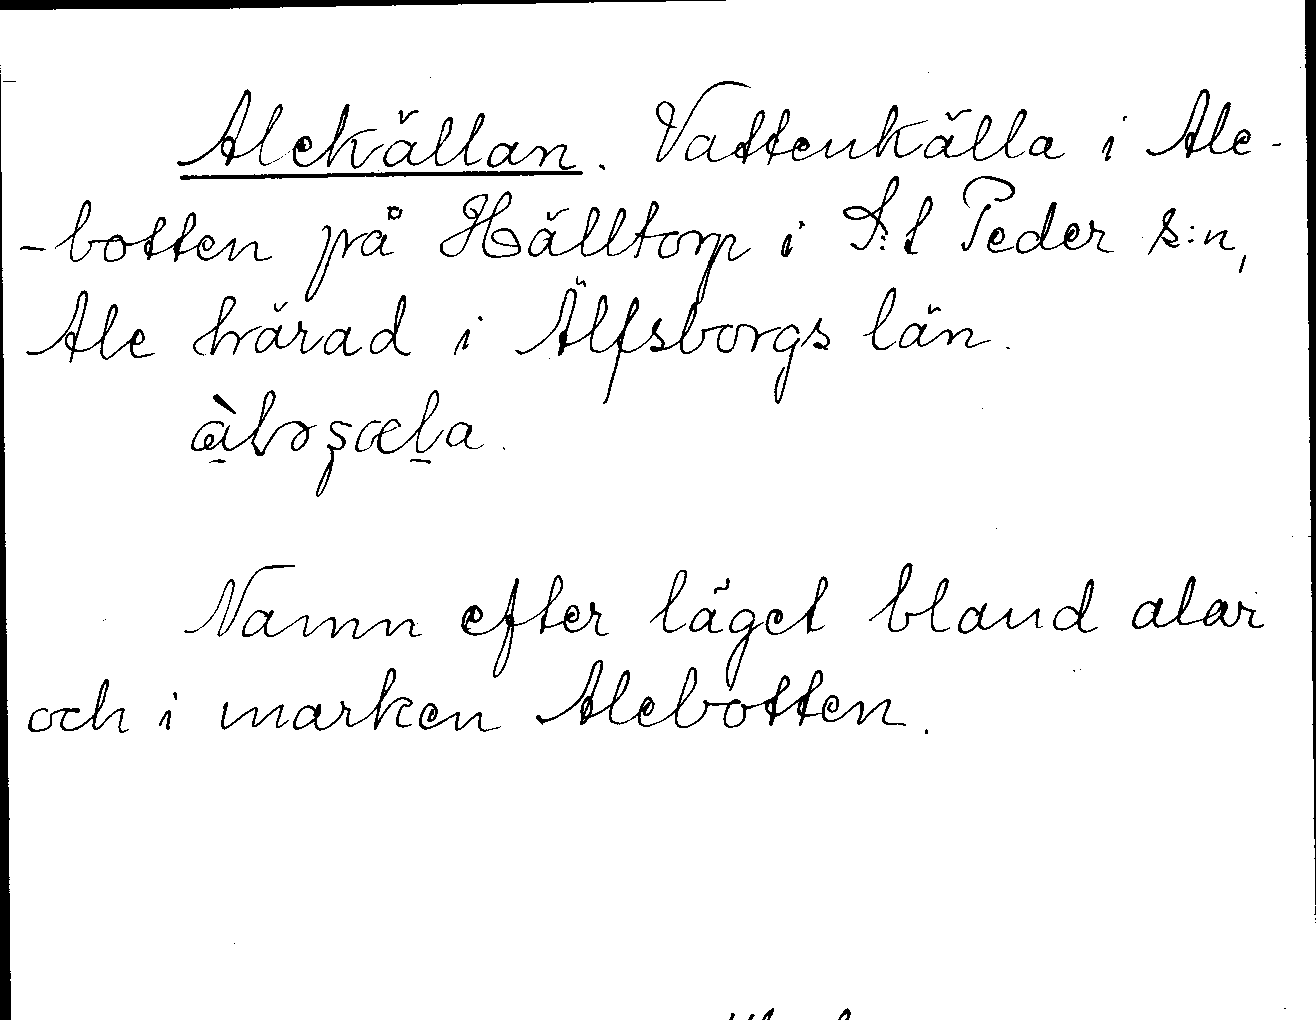 Alekällan. Vattenkälla i Ale-
-botten på Hälltorp i S:t Peder s:n,
Ale härad i Älfsborgs län.
Namn efter läget bland alar
och i marken Alebotten.